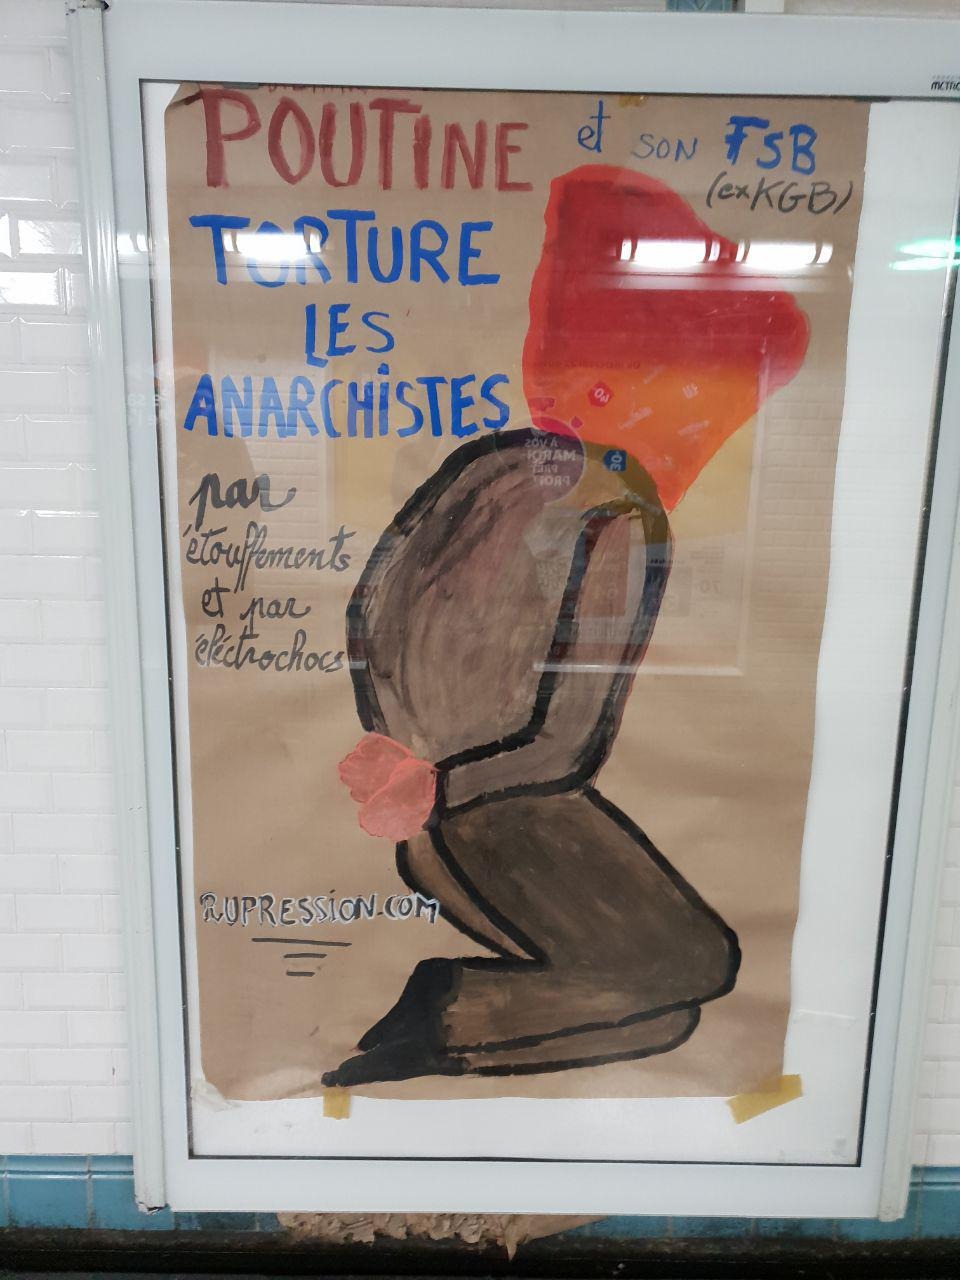 POUTINE et SON FSB
(exKGB)
TORTURE
LES
ANARCHiSTES
par
étouffements
et par
éléctrochocs
RUPRESSiON.COM